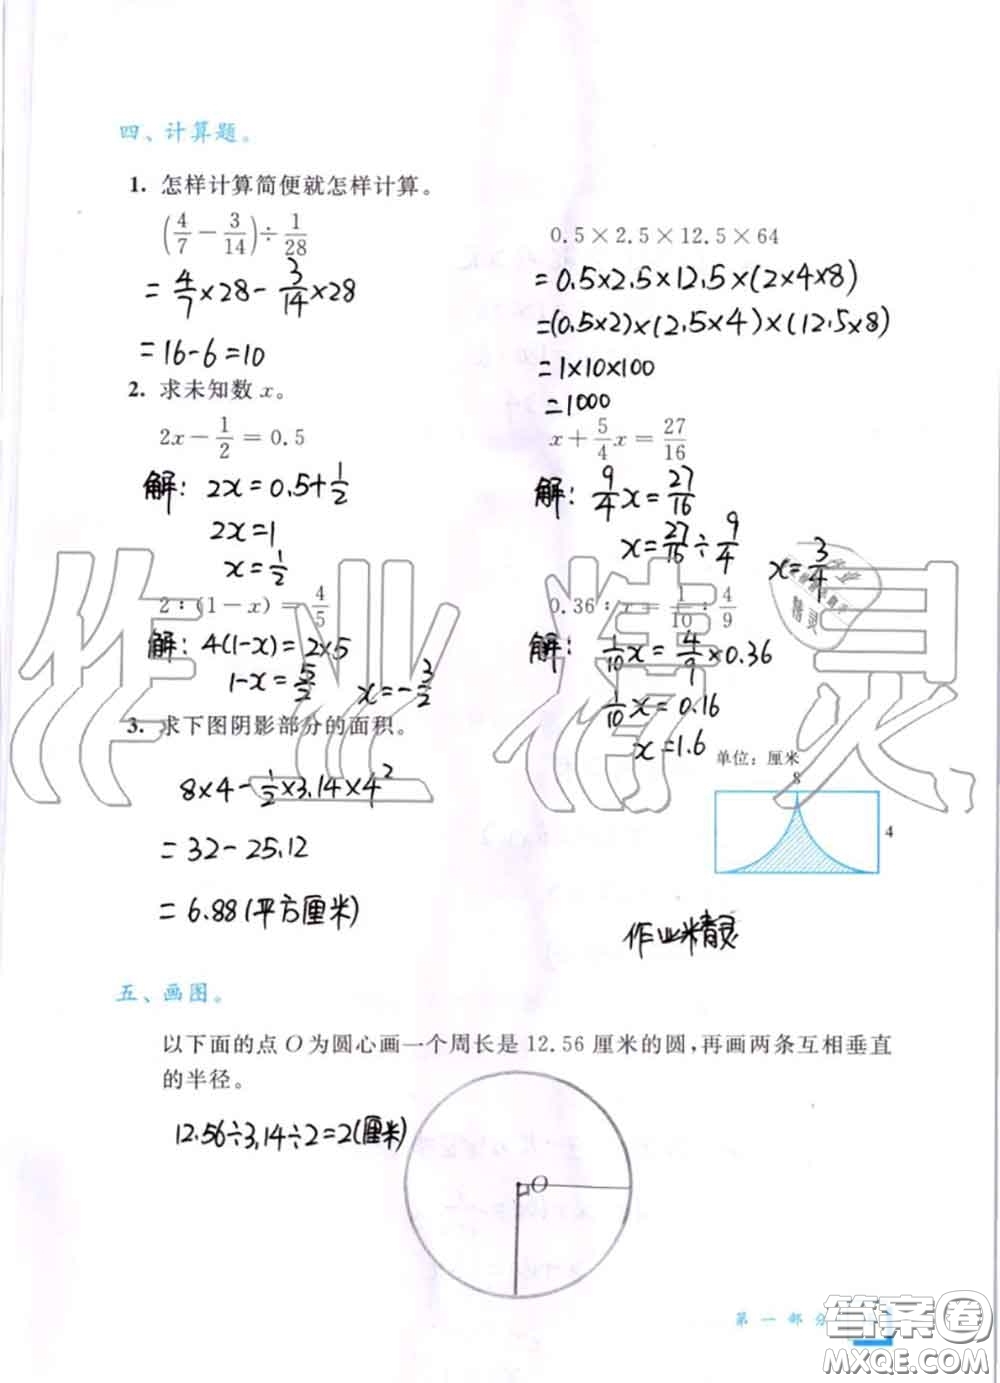 四、计算题。
1. 怎样计算简便就怎样计算。
(4/7 − 3/14) ÷ 1/28
= 4/7 × 28 − 3/14 × 28
= 16 − 6 = 10
0.5×2.5×12.5×64
= 0.5×2.5×12.5×(2×4×8)
=(0.5×2)×(2.5×4)×(12.5×8)
= 1×10×100
= 1000
2. 求未知数 x。
2x − 1/2 = 0.5
解: 2x = 0.5 + 1/2
2x = 1
x = 1/2
x + 5/4 x = 27/16
解: 9/4 x = 27/16
x = 27/16 ÷ 9/4
x = 3/4
2 : (1 − x) = 4/5
解: 4(1-x) = 2×5
1-x = 5/2
x = − 3/2
0.36 : x = 1/10 : 4/9
解: 1/10 x = 4/9 × 0.36
1/10 x = 0.16
x = 1.6
3. 求下图阴影部分的面积。
8×4 − 1/2 × 3.14 × 4²
= 32 − 25.12
= 6.88 (平方厘米)
单位: 厘米
8
4
作业精灵
五、画图。
以下面的点 O 为圆心画一个周长是 12.56 厘米的圆,再画两条互相垂直
的半径。
12.56÷3.14÷2=2(厘米)
O
第一部分
作业精灵
精灵
答案圈
MXQE.COM